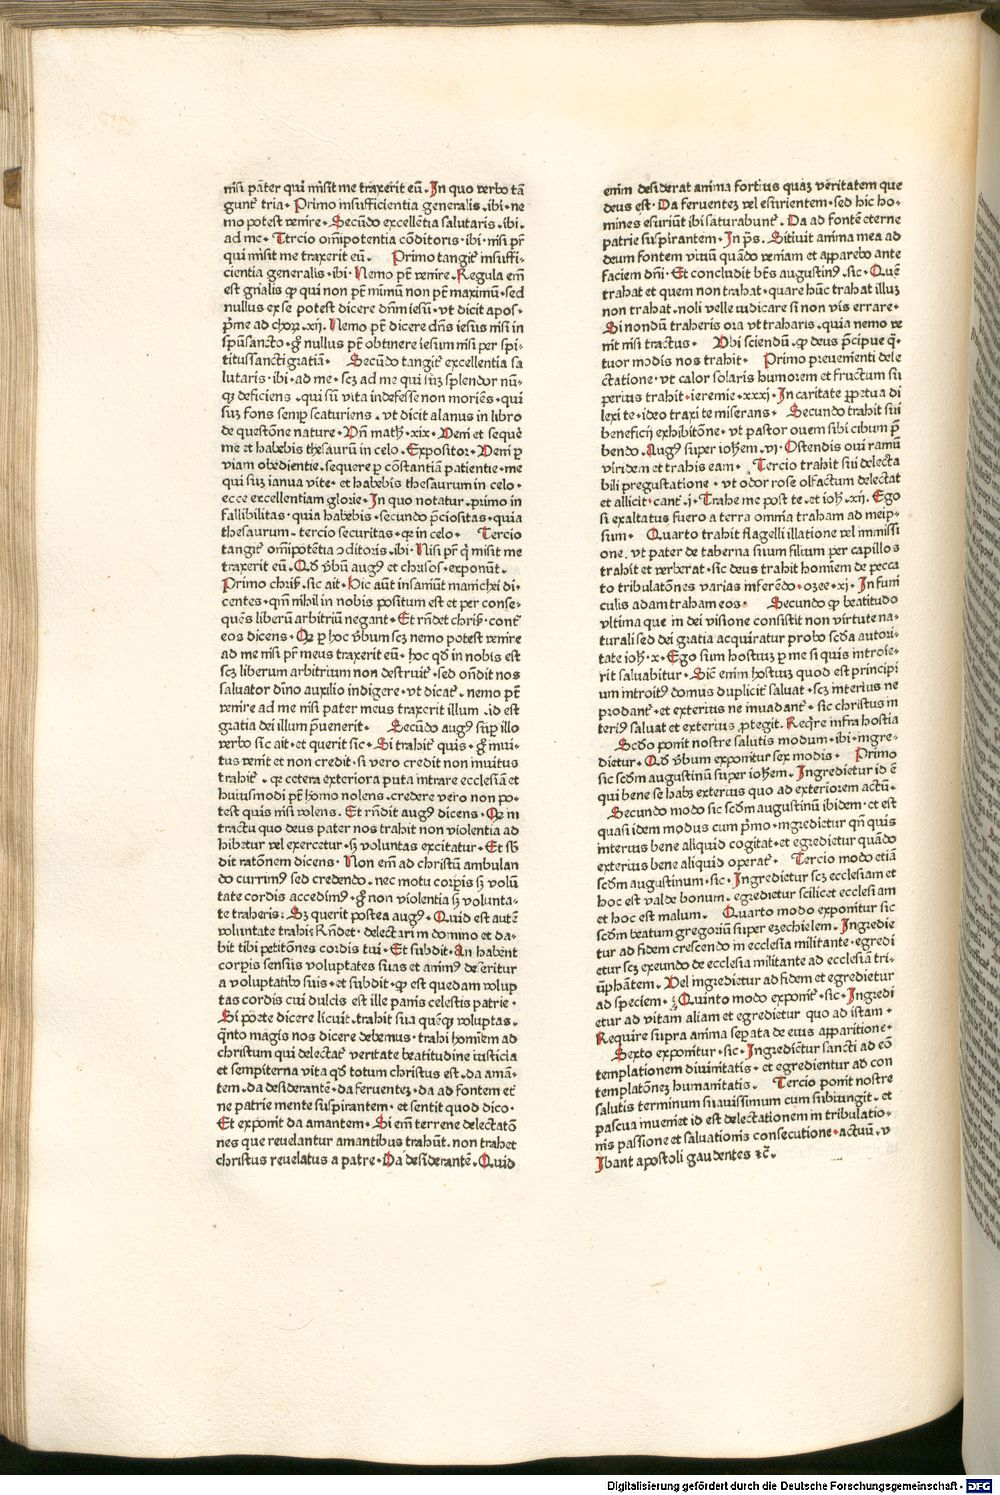 nisi pater qui misit me traxerit eū. In quo verbo tā
gunt᷑ tria. Primo insufficientia generalis. ibi. ne
mo potest venire. Secūdo excellētia salutaris. ibi.
ad me. Tercio om̄ipotentia cōditoris. ibi. nisi pr̄
qui misit me traxerit eū. Primo tangit᷑ insuffi-
cientia generalis. ibi. Nemo pt̄ venire. Regula em̄
est gn̄ialis ꝙ qui non pt̄ minimū non pt̄ maximū. sed
nullus ex se potest dicere dn̄m iesū. vt dicit apos.
p̄me ad choꝝ. xij. Nemo pt̄ dicere dn̄s iesus nisi in
spū sancto. gͦ nullus pt̄ obtinere iesum nisi per spi-
titussancti gratiā. Secūdo tangit᷑ excellentia sa
lutaris. ibi. ad me. scꝫ ad me qui suꝫ splendor nū-
qꝫ deficiens. qui sū vita indefesse non moriēs. qui
suꝫ fons semꝑ scaturiens. vt dicit alanus in libro
de questōne nature. Vn̄ math̄. xix. Veni et sequer̄
me et habebis thesaurū in celo. Expositor. Veni ꝑ
viam obedientie. sequere ꝑ cōstantiā patientie. me
qui suꝫ ianua vite. et habebis thesaurum in celo.
ecce excellentiam glorie. In quo notatur. primo in
fallibilitas. quia habebis. secundo p̄ciositas. quia
thesaurum. tercio securitas. qꝛ in celo. Tercio
tangit᷑ om̄ipotētia ↄditoris. ibi. Nisi pr̄ q̇ misit me
traxerit eū. Qd̄ v̄bū augꝰ et chrisos. exponūt.
Primo chris̄. sic ait. Hic aūt insaniūt manichei di-
centes. qm̄ nihil in nobis positum est et per conse-
quēs liberū arbitriū negant. Et rn̄det chris̄. cont̄
eos dicens. Qꝛ ꝑ hoc v̄bum scꝫ nemo potest venire
ad me nisi pr̄ meus traxerit eū. hoc qd̄ in nobis est
scꝫ liberum arbitrium non destruit᷑. sed on̄dit nos
saluator dīno auxilio indigere. vt dicat᷑. nemo pt̄
venire ad me nisi pater meus traxerit illum. id est
gratia dei illum p̄uenerit. Secūdo augꝰ suꝑ illo
verbo sic ait. et querit sic. Si trahit᷑ quis. gͦ inui-
tus venit et non credit. si vero credit non inuitus
trahit᷑. qꝛ cetera exteriora puta intrare ecclesiā et
huiusmodi pt̄ homo nolens. credere vero non po-
test quis nisi volens. Et rn̄dit augꝰ dicens. Qꝛ in
tractu quo deus pater nos trahit non violentia ad
hibetur vel exercetur. sꝫ voluntas excitatur. Et sb̄
dit ratōnem dicens. Non em̄ ad christū ambulan
do currimꝰ sed credendo. nec motu corpis sꝫ volū
tate cordis accedimꝰ. gͦ non violentia sꝫ volunta-
te traheris. Sꝫ querit postea augꝰ. Quid est autē
voluntate trahi. Rn̄det. delectari in domino et da-
bit tibi petitōnes cordis tui. Et subdit. An habent
corpis sensus voluptates suas et animꝰ deseritur
a voluptatibꝰ suis. et subdit. ꝙ est quedam volup
tas cordis cui dulcis est ille panis celestis patrie.
Si poete dicere licuit. trahit sua quēqꝫ voluptas.
q̄nto magis nos dicere debemus. trahi hominem ad
christum qui delectat᷑ veritate beatitudine iusticia
et sempiterna vita qd̄ totum christus est. da amā-
tem. da desiderantē. da feruenteꝫ. da ad fontem et̄
ne patrie mente suspirantem. et sentit quod dico.
Et exponit da amantem. Si em̄ terrene delectatō
nes que reuelantur amantibus trahūt. non trahet
christus reuelatus a patre. Da desiderantē. Quid
enim desiderat anima fortius quaꝫ veritatem que
deus est. Da feruenteꝫ vel esurientem. sed hic ho-
mines esuriūt ibi saturabunt᷑. Da ad fontē eterne
patrie suspirantem. In ps̄. Sitiuit anima mea ad
deum fontem viuū quādo veniam et apparebo ante
faciem dn̄i. Et concludit bt̄s augustinꝰ. sic. Quē
trahat et quem non trahat. quare hūc trahat illuꝫ
non trahat. noli velle iudicare si non vis errare.
Si nondū traheris ora vt traharis. quia nemo ve
nit nisi tractus. Vbi sciendū. ꝙ deus p̄cipue q̄-
tuor modis nos trahit. Primo preuenienti dele
ctatione. vt calor solaris humorem et fructum su
perius trahit. ieremie. xxxi. In caritate ꝑpetua di
lexi te. ideo traxi te miserans. Secundo trahit sui
beneficij exhibitōne. vt pastor ouem sibi cibum p̄
bendo. Augꝰ super ioh̄em. vj. Ostendis oui ramū
viridem et trahis eam. Tercio trahit sui delecta
bili pregustatione. vt odor rose olfactum delectat
et allicit. cant᷑. j. Trahe me post te. et ioh̄. xij. Ego
si exaltatus fuero a terra omnia traham ad meip-
sum. Quarto trahit flagelli illatione vel immissi
one. vt pater de taberna suum filium per capillos
trahit et verberat. sic deus trahit hominem de pecca
to tribulatōnes varias inferēdo. ozee. xj. In funi
culis adam traham eos. Secundo ꝙ beatitudo
vltima que in dei visione consistit non virtute na-
turali sed dei gratia acquiratur probo scd̄a autori-
tate ioh̄. x. Ego sum hostiuꝫ ꝑ me si quis introie-
rit saluabitur. Sic̄ enim hostiuꝫ quod est principi
um introitꝰ domus duplicit᷑ saluat. scꝫ interius ne
prodant᷑. et exterius ne inuadant᷑. sic christus in
teriꝰ saluat et exterius ꝓtegit. Req̄re infra hostia
Scd̄o ponit nostre salutis modum. ibi. ingre-
dietur. Qd̄ v̄bum exponitur sex modis. Primo
sic scd̄m augustinū super ioh̄em. Ingredietur id ē
qui bene se habꝫ exterius quo ad exteriorem actū.
Secundo modo sic scd̄m augustinū ibidem. et est
quasi idem modus cum p̄mo. ingredietur qn̄ quis
interius bene aliquid cogitat. et egredietur quādo
exterius bene aliquid operat᷑. Tercio modo etiā
scd̄m augustinum. sic. Ingredietur scꝫ ecclesiam et
hoc est valde bonum. egredietur scilicet ecclesiam
et hoc est malum. Quarto modo exponitur sic
scd̄m beatum gregoriū super ezechielem. Ingredie
tur ad fidem crescendo in ecclesia militante. egredi
etur scꝫ exeundo de ecclesia militante ad ecclesiā tri-
ūphantem. Vel ingredietur ad fidem et egredietur
ad speciem. Quinto modo exponit᷑. sic. Ingredi
etur ad vitam aliam et egredietur quo ad istam.
Require supra anima seꝑata de eius apparitione.
Sexto exponitur. sic. Ingrediētur sancti ad cō
templationem diuinitatis. et egredientur ad con
templatōneꝫ humanitatis. Tercio ponit nostre
salutis terminum suauissimum cum subiungit. et
pascua inueniet id est delectationem in tribulatio-
nis passione et saluationis consecutione. actuū. v
Ibant apostoli gaudentes ⁊c̄.
Digitalisierung gefördert durch die Deutsche Forschungsgemeinschaft - DFG